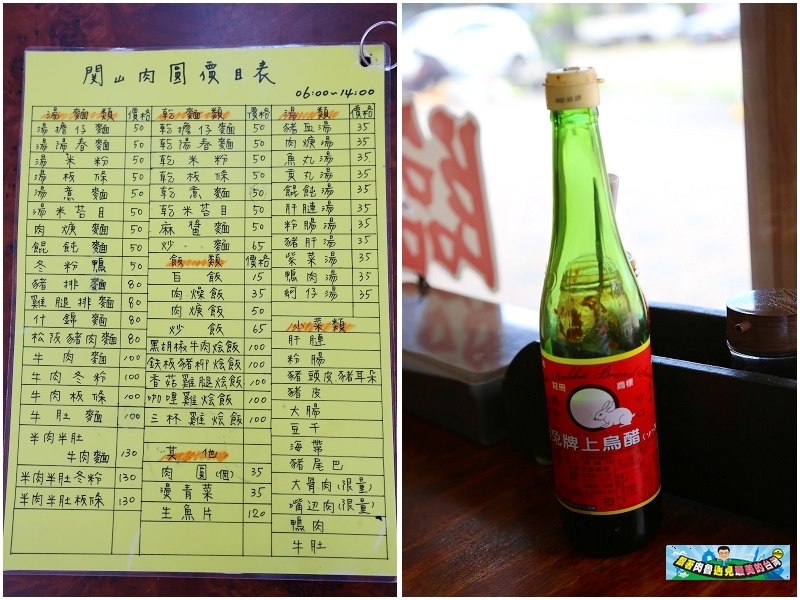 関山肉圓價目表
06:00~14:00
湯麵類 價格
湯擔仔麵 50
湯陽春麵 50
湯米粉 50
湯板條 50
湯意麵 50
湯米苔目 50
肉焿麵 50
餛飩麵 50
冬粉鴨 50
豬排麵 80
雞腿排麵 80
什錦麵 80
松阪豬肉麵 80
牛肉麵 100
牛肉冬粉 100
牛肉板條 100
牛肚麵 100
半肉半肚
牛肉麵 130
半肉半肚冬粉 130
半肉半肚板條 130
乾麵類 價格
乾擔仔麵 50
乾陽春麵 50
乾米粉 50
乾板條 50
乾意麵 50
乾米苔目 50
麻醬麵 50
炒麵 65
飯類 價格
白飯 15
肉燥飯 35
肉焿飯 50
炒飯 65
黑胡椒牛肉烩飯 100
鉄板豬柳烩飯 100
香菇雞腿烩飯 100
咖哩雞烩飯 100
三杯雞烩飯 100
其他
肉圓(個) 35
燙青菜 35
生魚片 120
湯類 價格
豬血湯 35
肉焿湯 35
魚丸湯 35
貢丸湯 35
餛飩湯 35
肝膁湯 35
粉腸湯 35
豬肝湯 35
紫菜湯 35
鴨肉湯 35
蚵仔湯 35
小菜類
肝膁
粉腸
豬頭皮豬耳朵
豬皮
大腸
豆干
海帶
豬尾巴
大骨肉(限量)
嘴边肉(限量)
鴨肉
牛肚
註冊 商標
兔牌上烏醋
跟著肉魯遇見最美的台灣